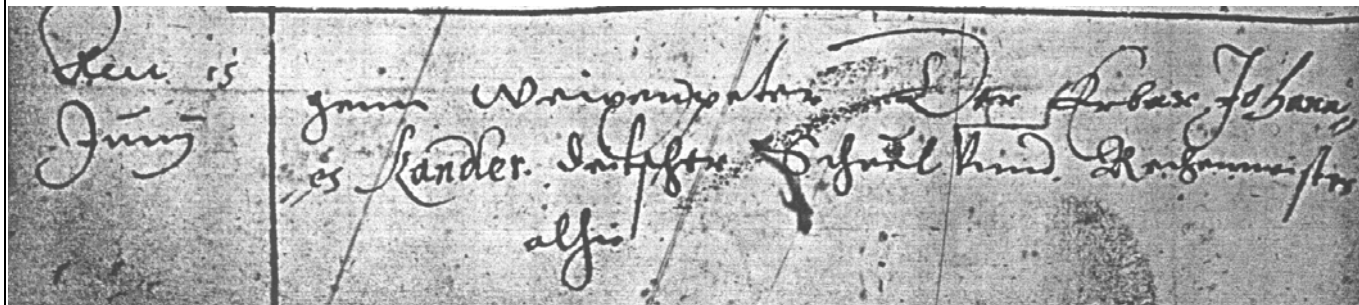 Den 15
Junij
genn Weixenpeter Der Erbar Johann„
„es Kandler. deutscher Schuel Vnnd. Rechenmeister
alhie